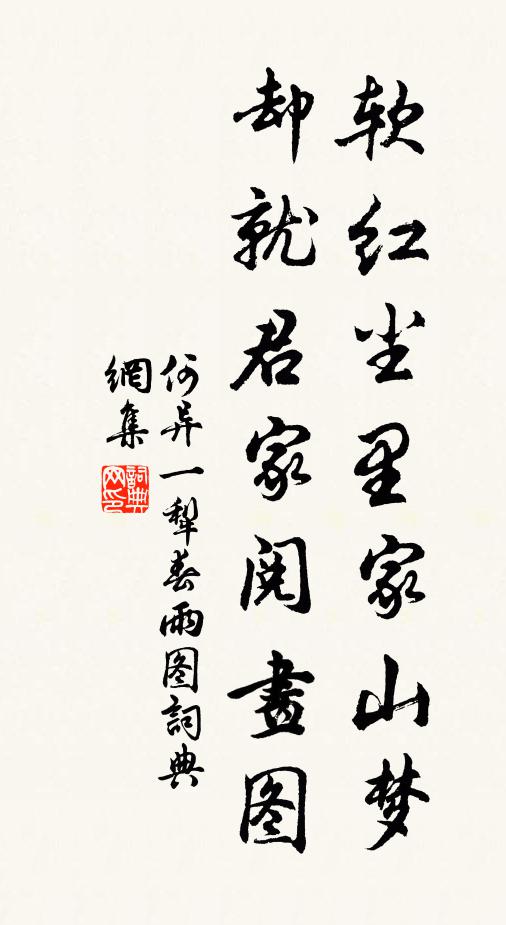 软红尘里家山梦
却就君家阅畫图
何异一犁春雨图詞典
網集
詞典网印